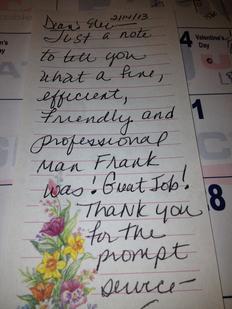 Dean's Elec 2/14/13
Just a note
to tell you
what a fine,
efficient,
friendly and
professional
man Frank
was! Great Job!
Thank you
for the
prompt
service-
4
Valentine's
Day
1
8